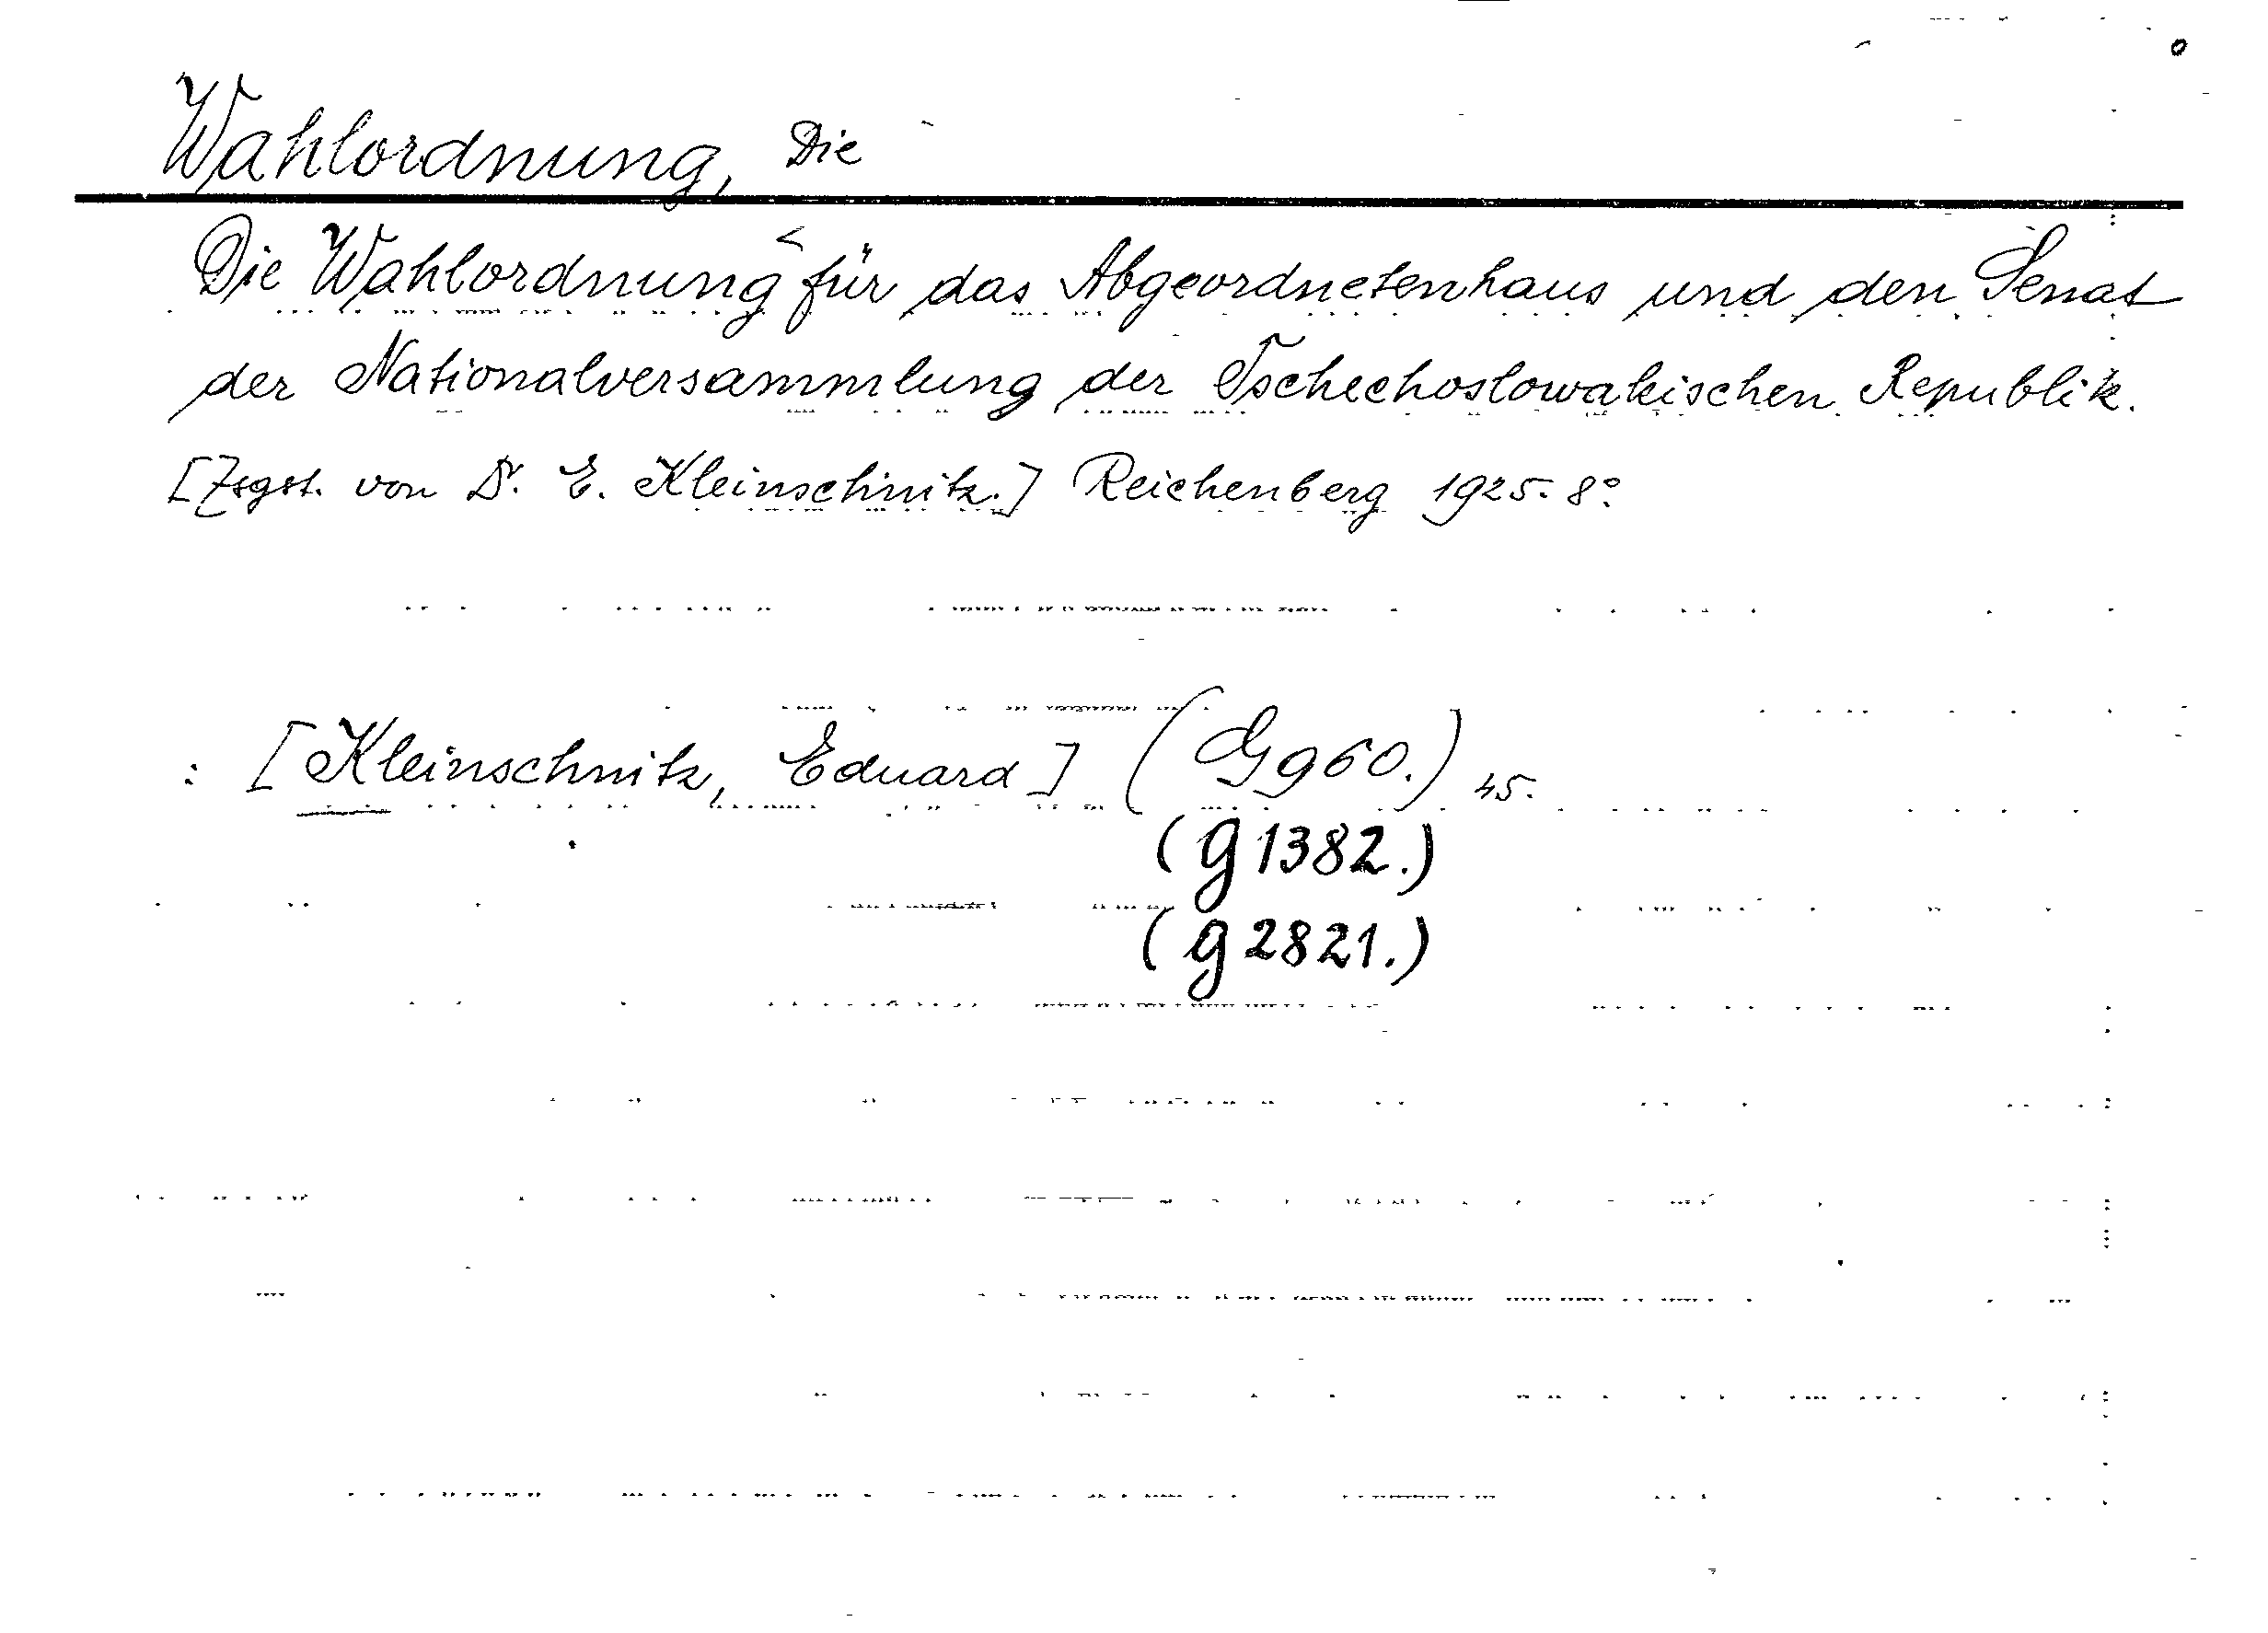 Wahlordnung, Die
Die Wahlordnung für das Abgeordnetenhaus und den Senat
der Nationalversammlung der Tschechoslowakischen Republik.
[Zsgst. von Dr. E. Kleinschnitz.] Reichenberg 1925. 8°
: [Kleinschnitz, Eduard] (G 960.) 45.
(g 1382.)
(g 2821.)